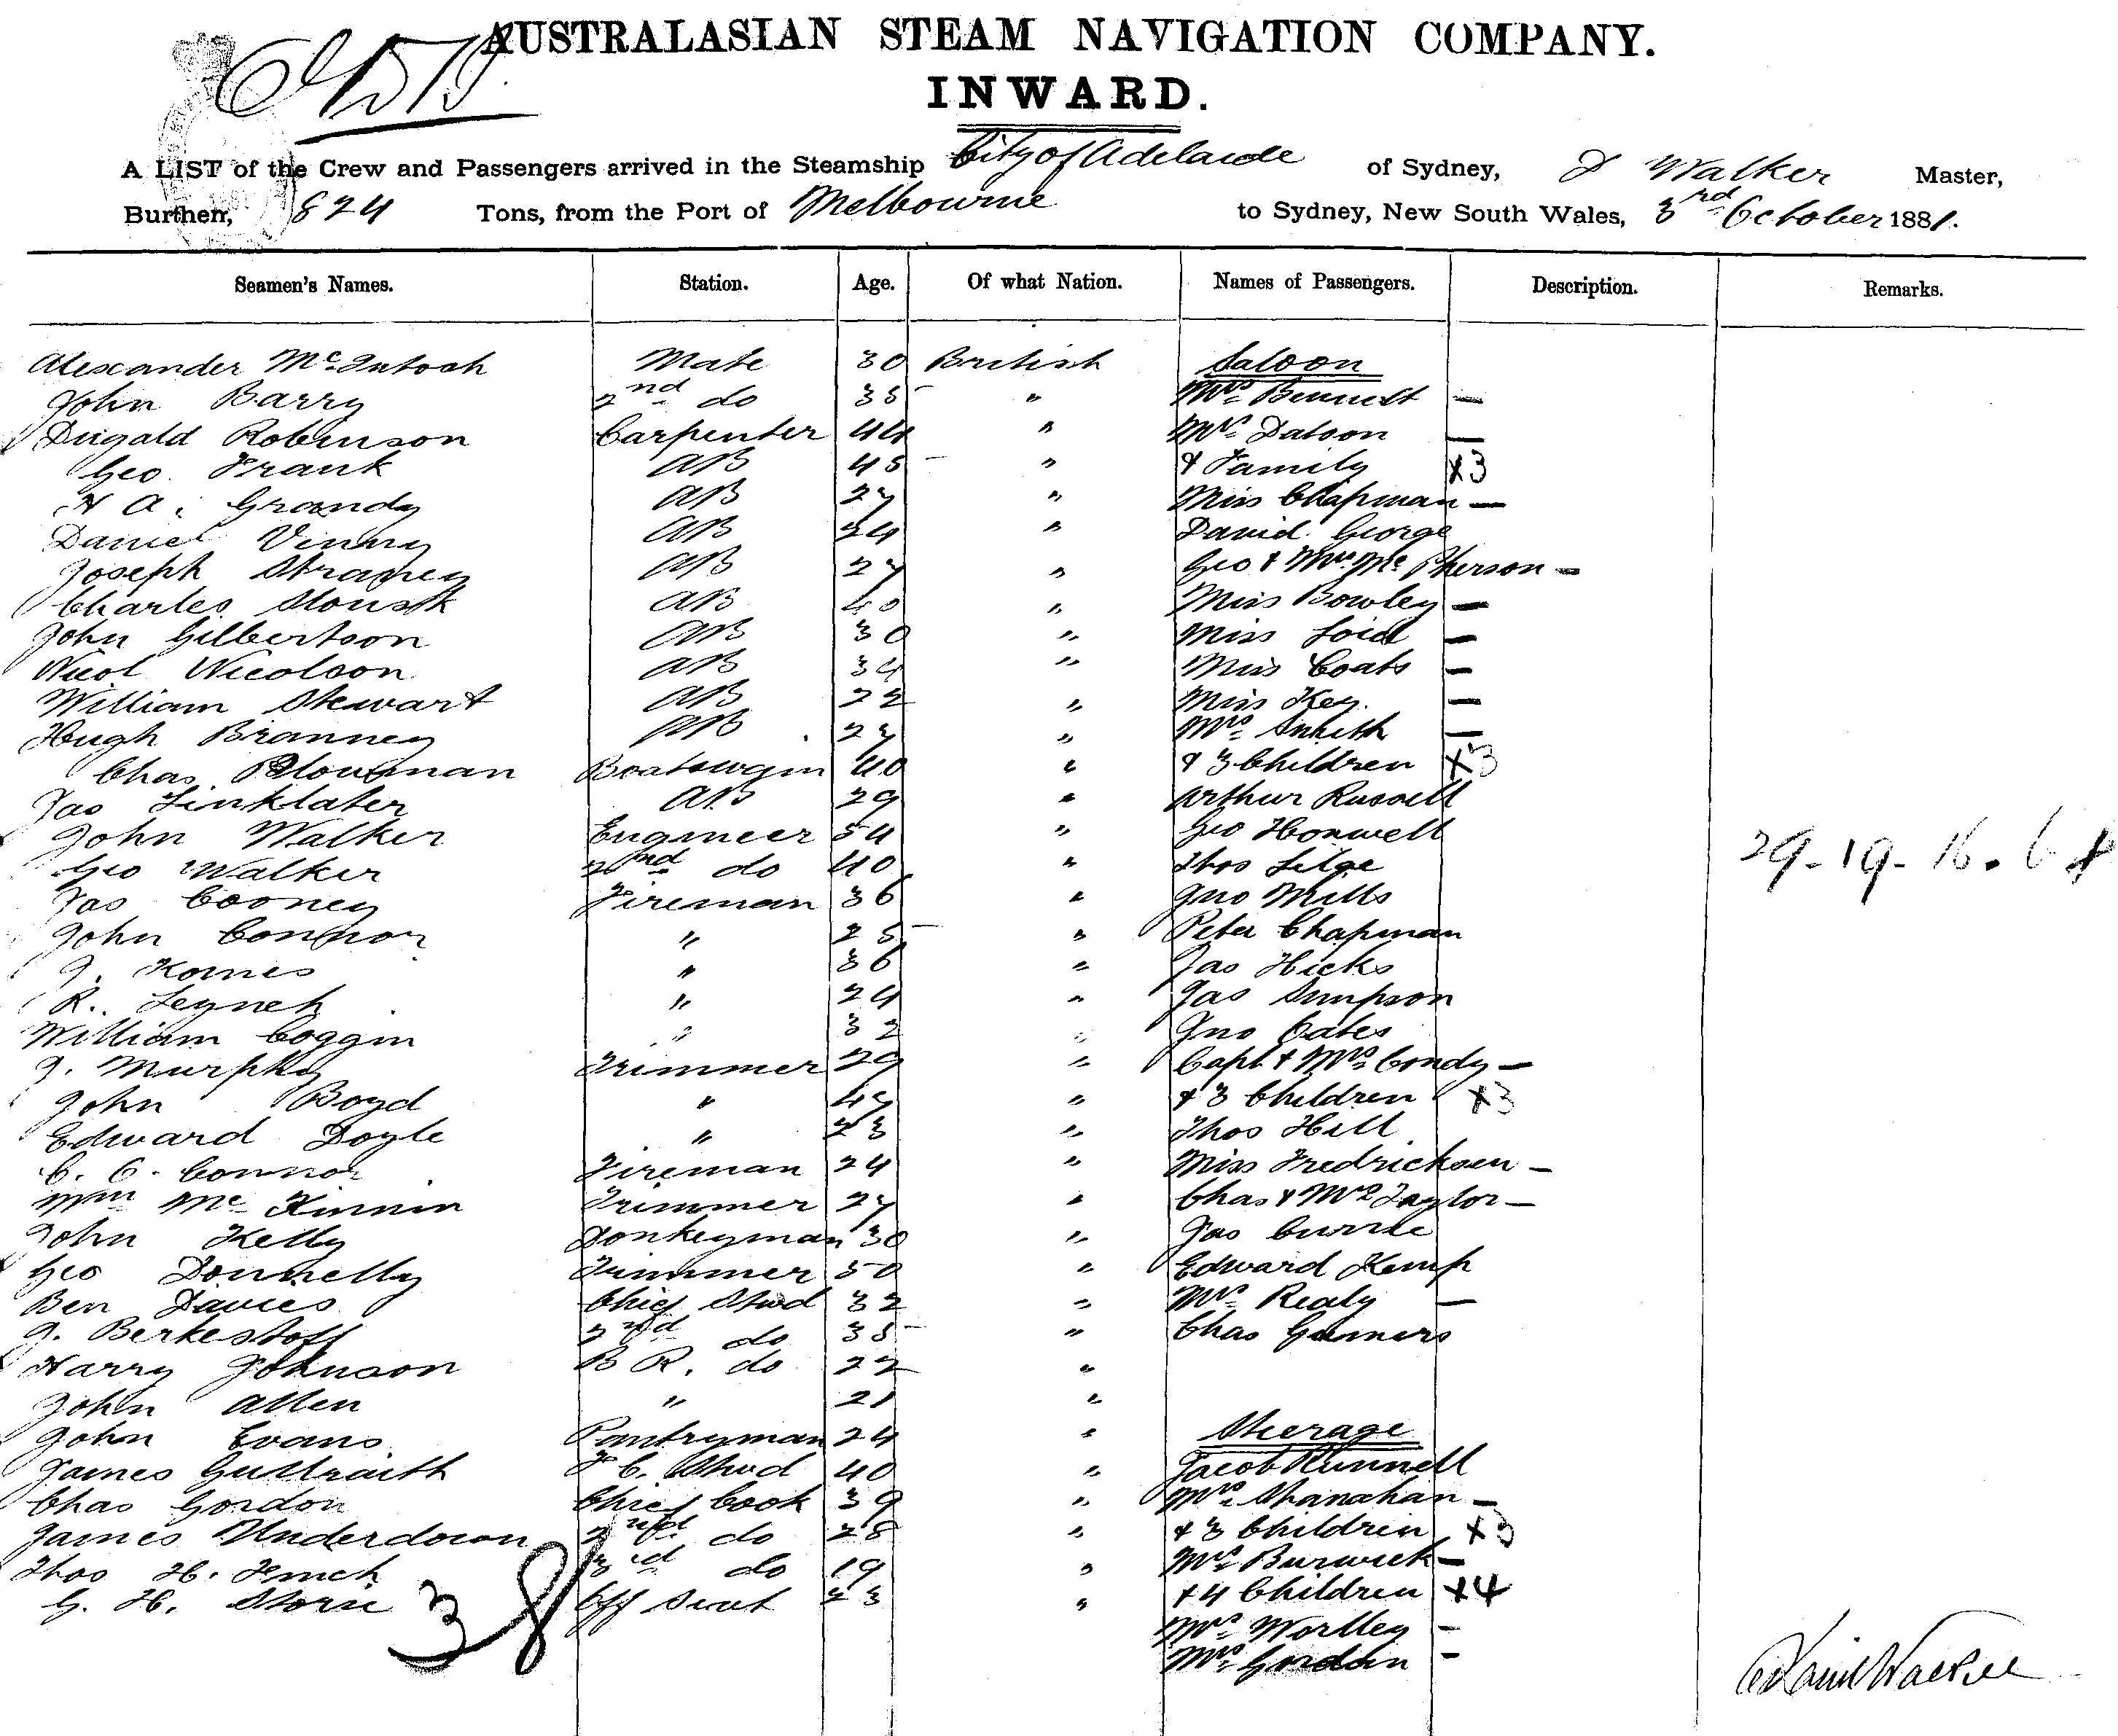 AUSTRALASIAN STEAM NAVIGATION COMPANY.
INWARD.
A LIST of the Crew and Passengers arrived in the Steamship City of Adelaide of Sydney, D Walker Master,
Burthen, 824 Tons, from the Port of Melbourne to Sydney, New South Wales, 3rd October 1881.
Seamen's Names. Station. Age. Of what Nation. Names of Passengers. Description. Remarks.
Alexander McIntosh Mate 30 British Saloon
John Barry 2nd do 35 " Mrs Bennett —
Dugald Robinson Carpenter 44 " Mrs Datson —
Geo. Frank AB 45 " & Family x3
H A. Grandy AB 27 " Miss Chapman —
Daniel Vinny AB 24 " David George
Joseph AB 27 " Geo & Mrs McPherson —
Charles AB 40 " Miss Bowley —
John Gilbertson AB 30 " Miss Loid —
Nicol Nicolson AB 34 " Miss Coats —
William Stewart AB 22 " Miss Key. —
Hugh Branney AB 27 " Mrs Smith —
Chas Plowman Boatswain 40 " & 3 Children x3
Jas Linklater AB 29 " Arthur Russell
John Walker Engineer 54 " Geo Honwell
Geo Walker 2nd do 40 " Thos
Jas Cooney Fireman 36 " Jno Mills
John Connor " 25 " Peter Chapman
J. " 36 " Jas Hicks
R. Leynch " 24 " Jas Simpson
William Coggin " 32 " Jno Cates
J. Murphy Trimmer 29 " Capt & Mrs Condy —
John Boyd " 47 " & 3 Children x3
Edward Doyle " 23 " Thos Hill
C. O. Connor Fireman 24 " Miss Fredricksen —
Wm McKinnin Trimmer 27 " Chas & Mrs Taylor —
John Kelly Donkeyman 30 " Jas Currie
Geo Donnelly Trimmer 50 " Edward Kemp
Ben Davies Chief Stwd 32 " Mrs Realy —
J. Berkestoff 2nd do 35 " Chas Gunners
Harry Johnson B R. do 22 "
John Allen " 21 "
John Evans Pantryman 24 " Steerage
James Gullraith F C. Stwd 40 " Jacob Runnell
Chas Gordon Chief Cook 39 " Mrs Shanahan —
James Underdown 2nd do 28 " & 3 Children x3
Thos H. Finch 3rd do 19 " Mrs Burwick —
G. H. Storie Off Servt 23 " & 4 Children x4
Mrs Wortley —
Mrs Gordon —
38
29-19-16.